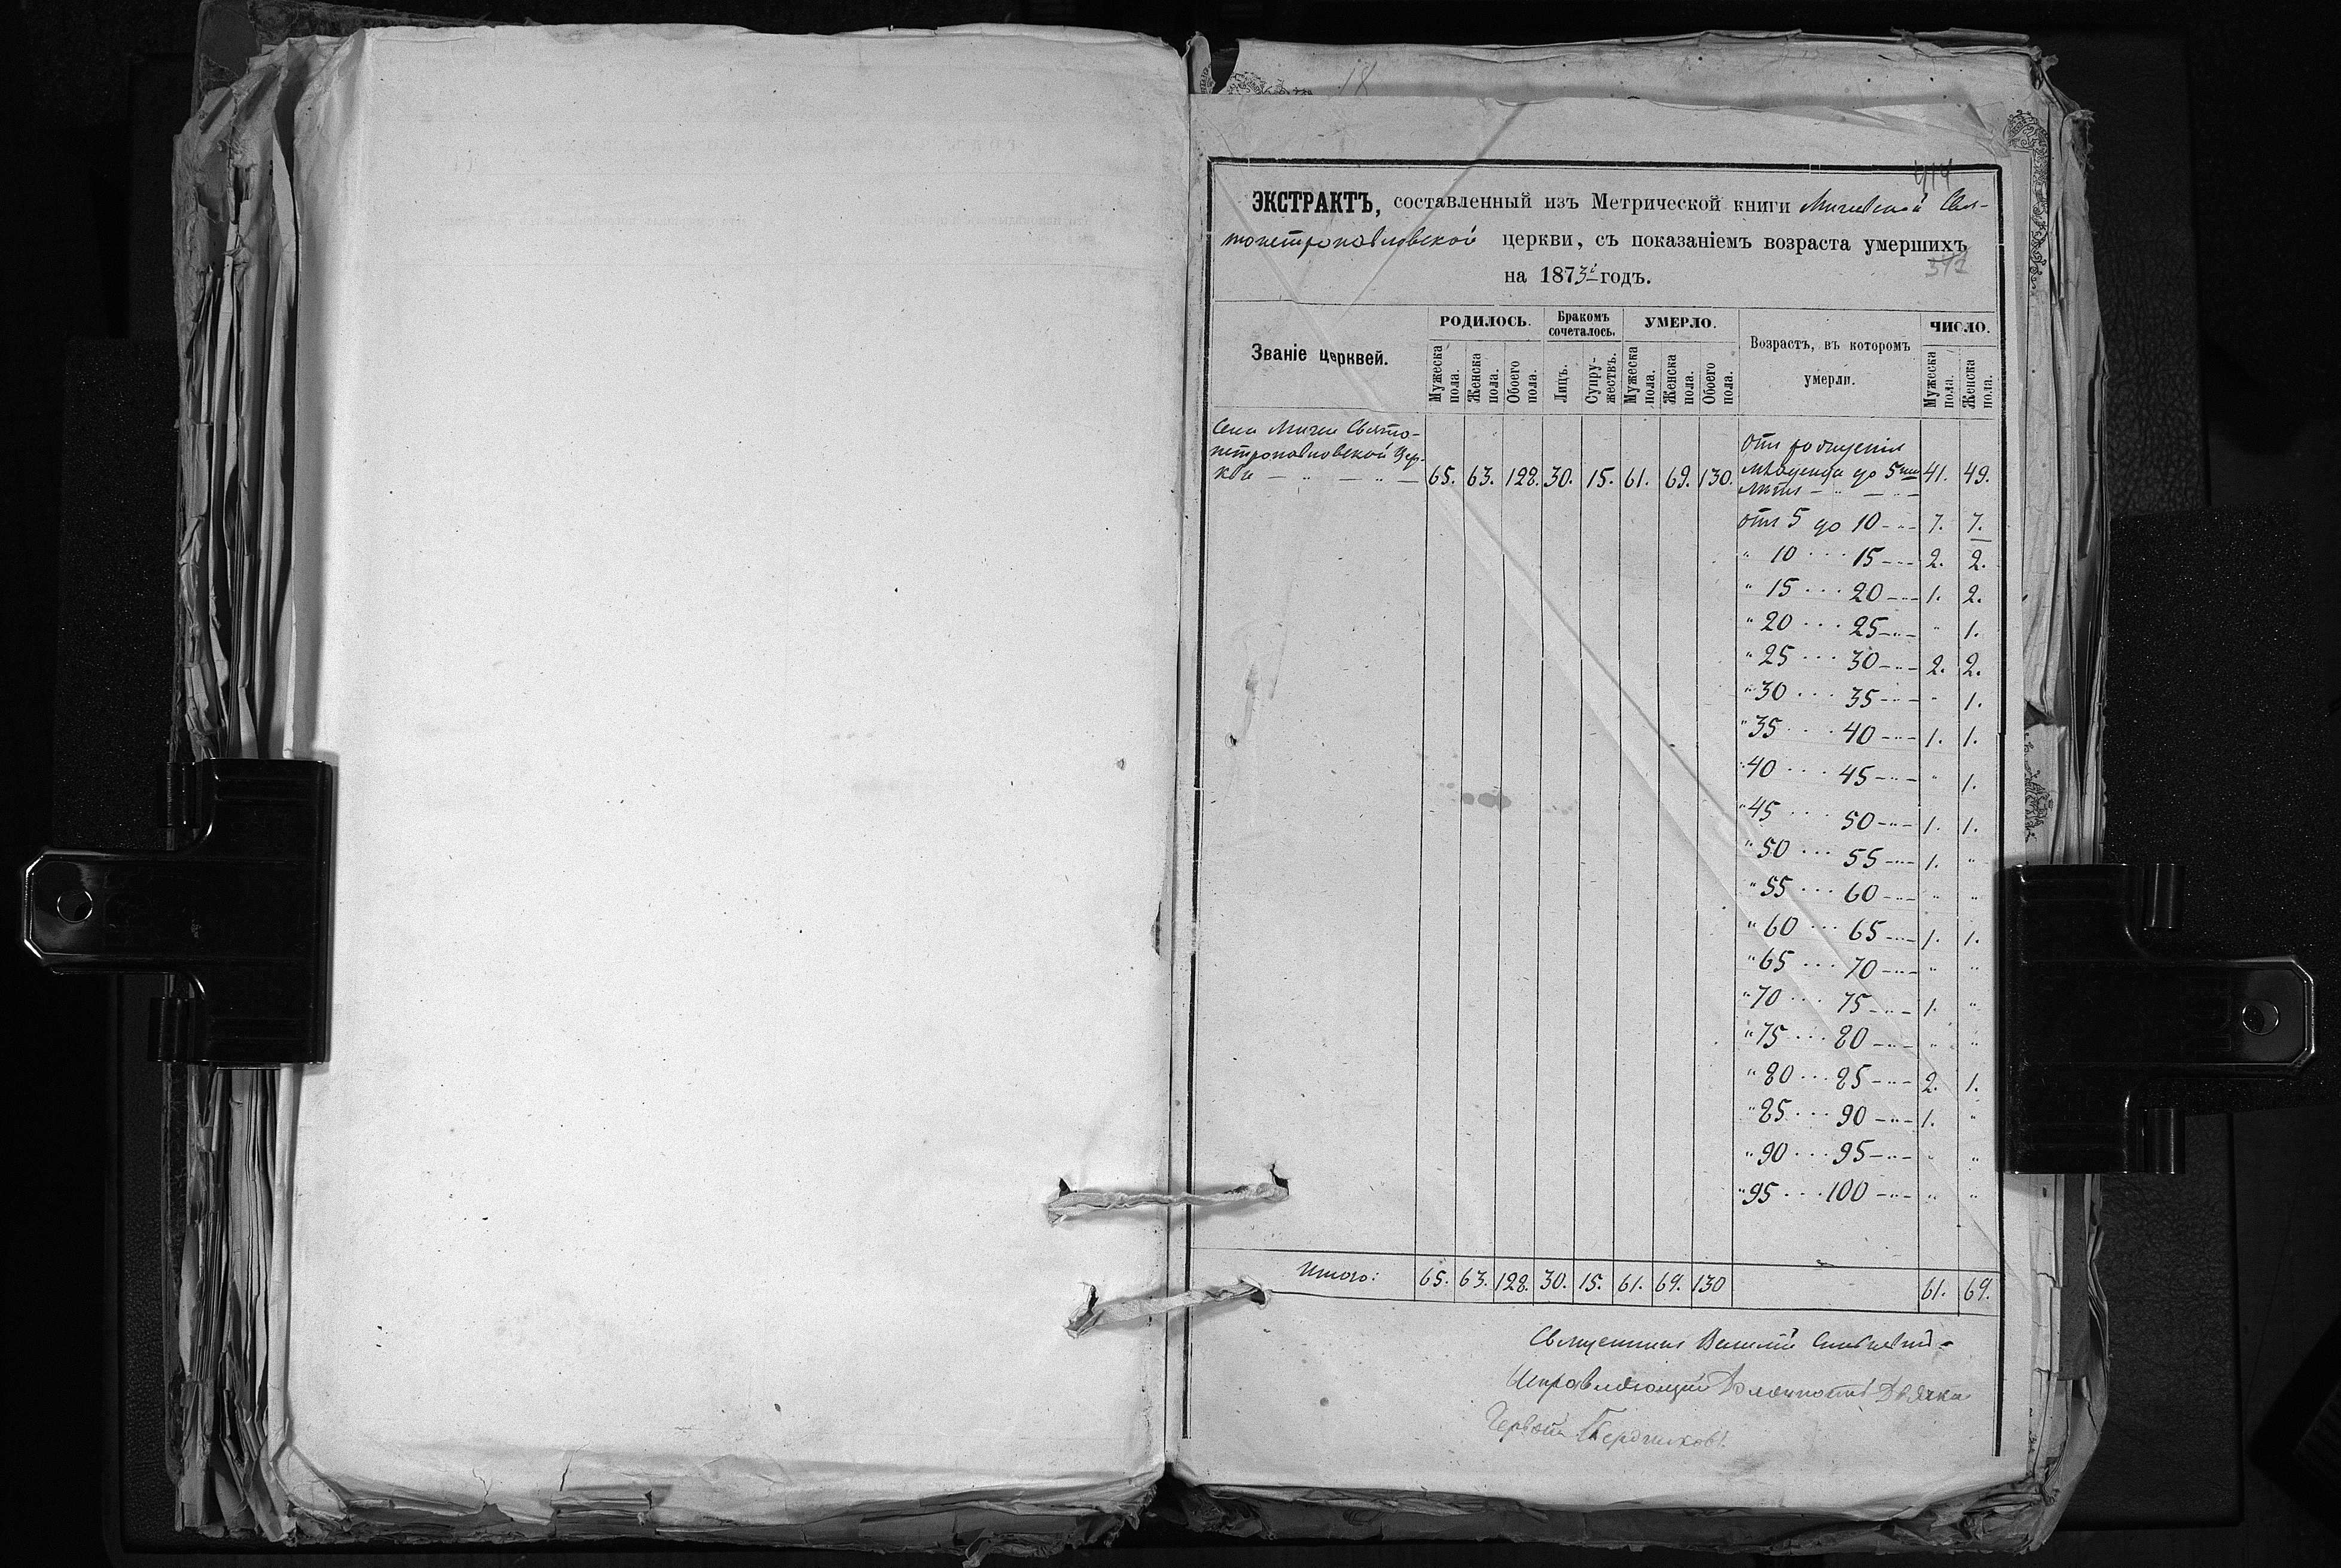 18
414
ЭКСТРАКТЪ, составленный изъ Метрической книги Мичевской Свя-
топетропавловской церкви, съ показаніемъ возраста умершихъ
на 1873й годъ.
Званіе церквей.
РОДИЛОСЬ. Бракомъ сочеталось. УМЕРЛО. Возрастъ, въ которомъ умерли. ЧИСЛО.
Мужеска пола. Женска пола. Обоего пола. Лицъ. Супружествъ. Мужеска пола. Женска пола. Обоего пола. Мужеска пола. Женска пола.
Села Мичеи Свято-
петропавловской Цер-
кви — „ — „ — 65. 63. 128. 30. 15. 61. 69. 130.
Отъ рожденія
младенца до 5ти 41. 49.
лѣтъ
отъ 5 до 10 7. 7.
„ 10 15 2. 2.
„ 15 20 1. 2.
„ 20 25 „ 1.
„ 25 30 2. 2.
„ 30 35 „ 1.
„ 35 40 1. 1.
„ 40 45 „ 1.
„ 45 50 1. 1.
„ 50 55 1. „
„ 55 60 „ „
„ 60 65 1. 1.
„ 65 70 „ „
„ 70 75 1. „
„ 75 80 „ „
„ 80 85 2. 1.
„ 85 90 1. „
„ 90 95 „ „
„ 95 100 „ „
Итого: 65. 63. 128. 30. 15. 61. 69. 130 61. 69.
Священникъ Василій
Исправляющій Должность Дьячка